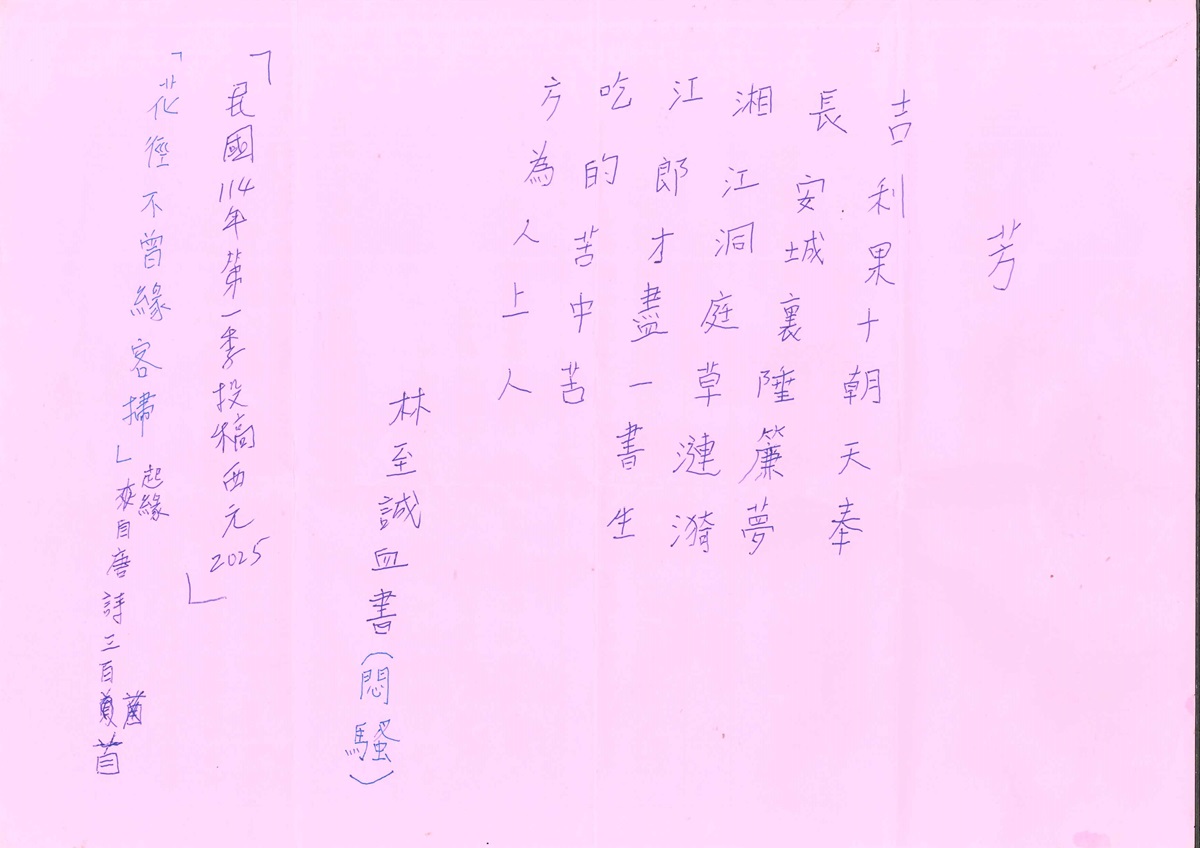 芳
吉利果十朝天奉
長安城裏陲簾夢
湘江洞庭草漣漪
江郎才盡一書生
吃的苦中苦
方為人上人
林至誠血書(悶騷)
「民國114年第一季投稿西元2025」
「花徑不曾緣客掃」起緣
來自唐詩三百首